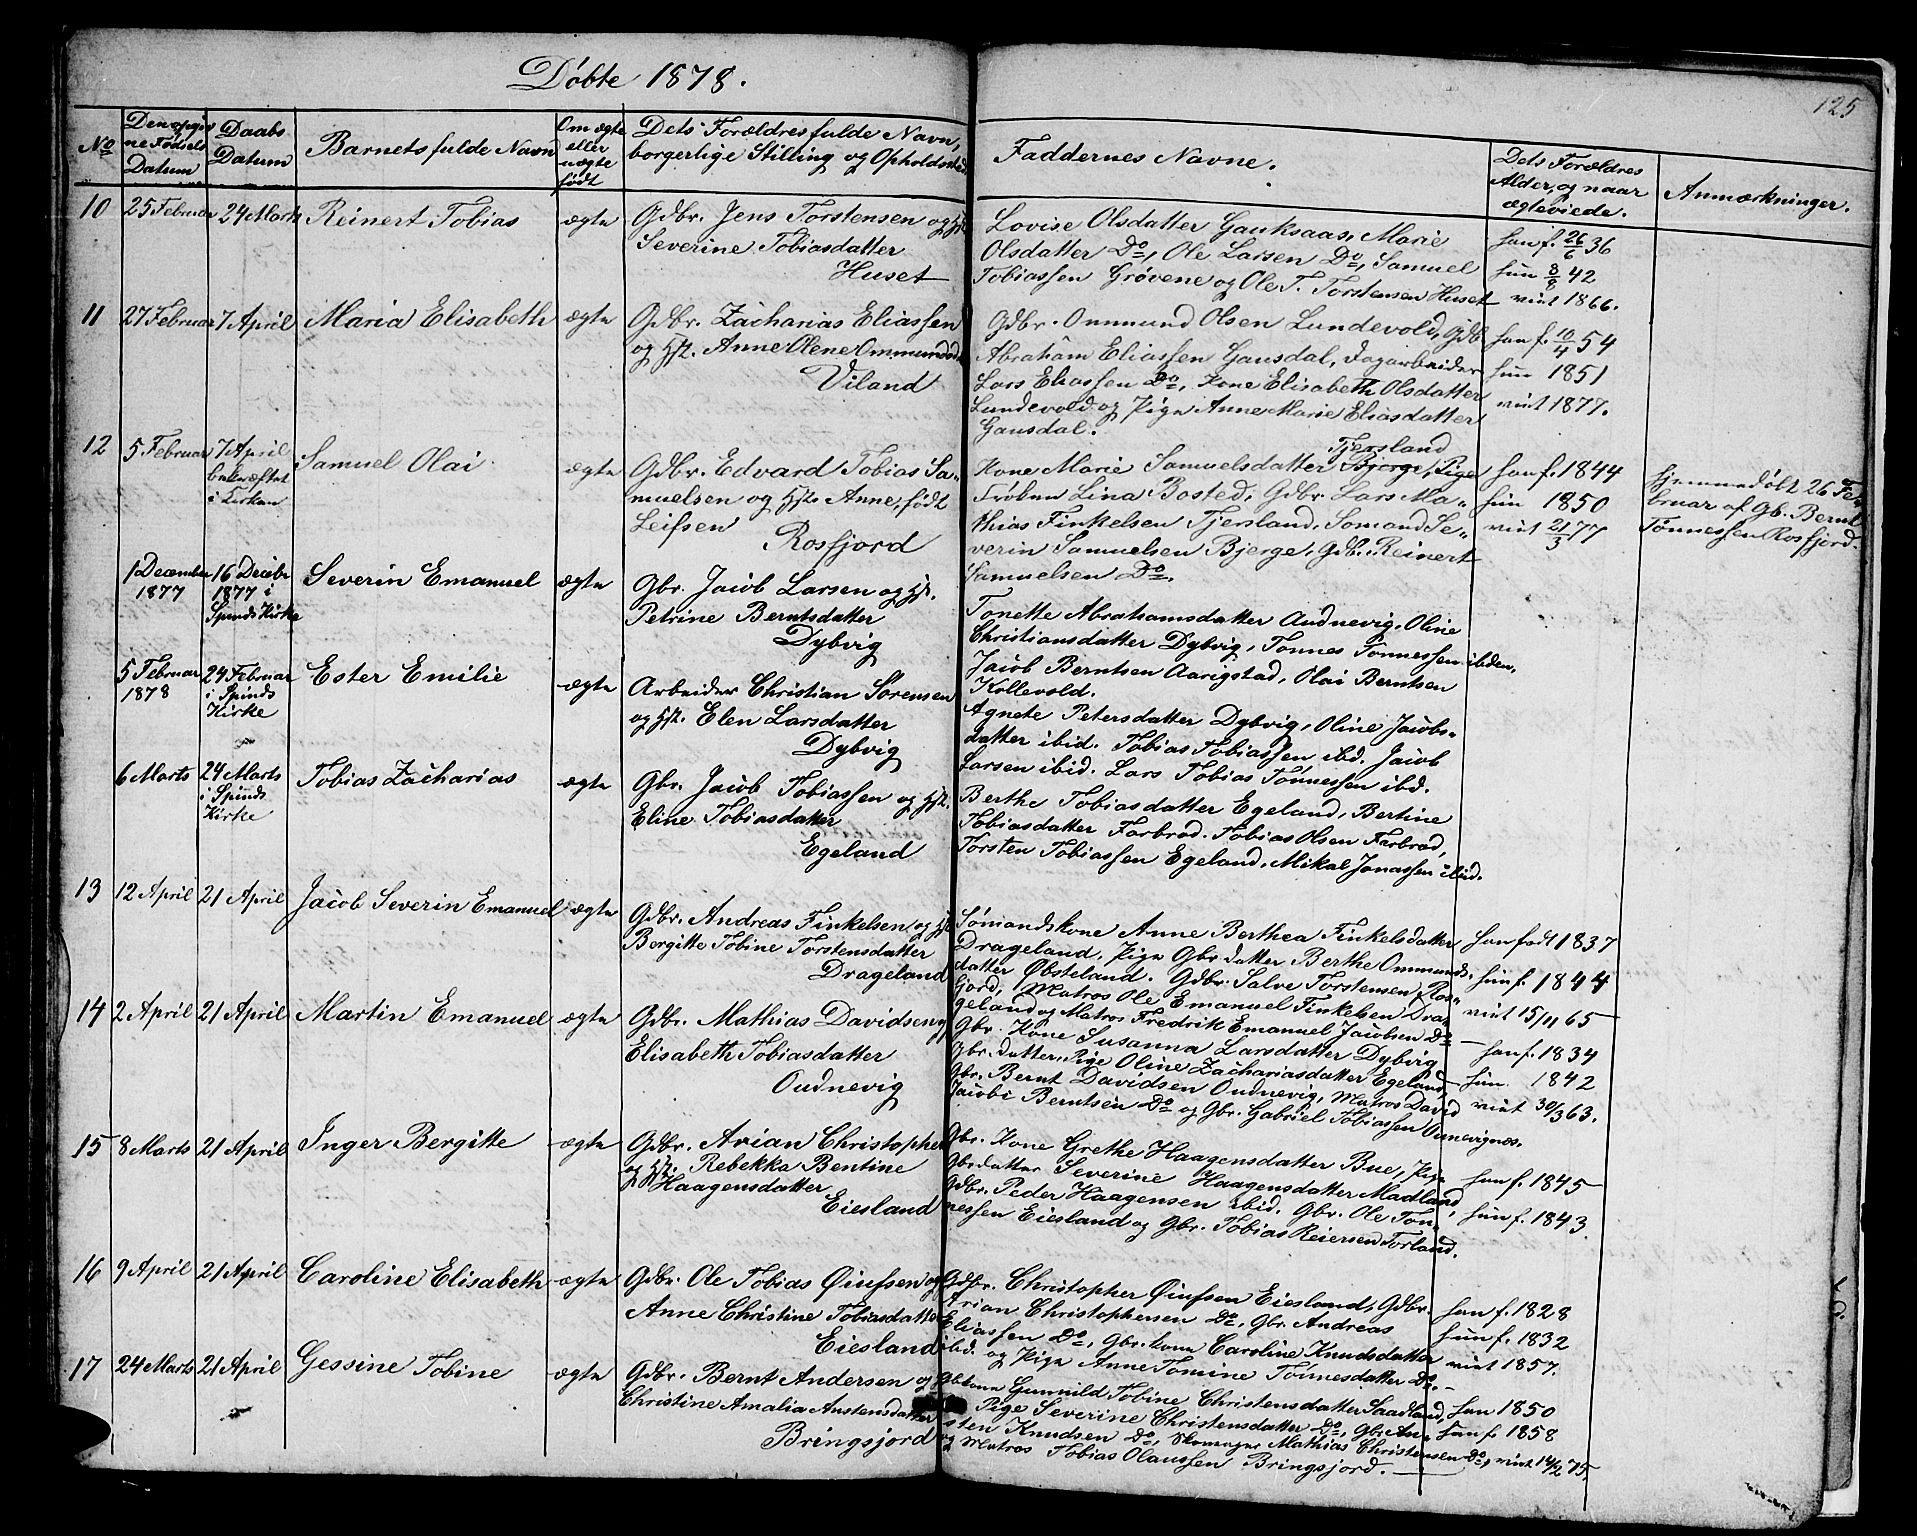 Døbte 1878.
125
No
Den opgiv
ne Fødsels
Datum
Daabs
Datum
Barnets fulde Navn
Om ægte
eller
uægte
født
Dets Forældres fulde Navn,
borgerlige Stilling og Opholdssted
Faddernes Navne.
Dets Forældres
Alder, og naar
ægteviede.
Anmærkninger.
10 25 Februar 24 Marts Reinert Tobias ægte
Gdbr. Jens Torstensen og Hst.
Severine Tobiasdatter
Huset
Lovise Olsdatter Gauksaas, Marie
Olsdatter Do, Ole Larsen Do, Samuel
Tobiassen Grövene og Ole T. Torstensen Huset
han f. 26/6 36
hun 8/8 42
viet 1866.
11 27 Februar 7 April Maria Elisabeth ægte
Gdbr. Zacharias Eliassen
og Hst. Anne Olene Ommundsd.
Viland
Gdbr. Ommund Olsen Lundevold, Gdb
Abraham Eliassen Gausdal, Dagarbeider
Lars Eliassen Do, Kone Elisabeth Olsdatter
Lundevold og Pige Anne Marie Eliasdatter
Gausdal.
han f. 10/4 54
hun 1851
viet 1877.
12 5 Februar 7 April
bekræftet
i Kirken
Samuel Olai ægte
Gdbr. Edvard Tobias Sa-
muelsen og Hst. Anne, født
Leifsen
Rosfjord
Tjersland
Kone Marie Samuelsdatter Bjerge, Pige
Frøken Lina Bosted, Gdbr. Lars Ma-
thias Finkelsen Tjersland, Sømand Se-
verin Samuelsen Bjerge, Gdb. Reinert
Samuelsen Do.
han f. 1844
hun 1850
viet 21/3 77
Hjemmedøbt 26 Fe-
bruar af Gb. Bernt
Tønnessen Rosfjord.
1 December
1877
16 Decbr
1877 i
Spinds Kirke
Severin Emanuel ægte
Gbr. Jacob Larsen og Hst.
Petrine Berntsdatter
Dybvig
Tonette Abrahamsdatter Audnevig, Oline
Christiansdatter Dybvig, Tønnes Tønnessen ibden,
Jacob Berntsen Aarigstad, Olai Berntsen
Kollevold.
5 Februar
1878
24 Februar
i Spinds
Kirke
Ester Emilie ægte
Arbeider Christian Sørensen
og Hst. Elen Larsdatter
Dybvig
Agnete Petersdatter Dybvig, Oline Jacobs-
datter ibid. Tobias Tobiassen ibd. Jacob
Larsen ibid. Lars Tobias Tønnessen ibd.
6 Marts 24 Marts
i Spinds
Kirke
Tobias Zacharias ægte
Gbr. Jacob Tobiassen og Hst.
Eline Tobiasdatter
Egeland
Berthe Tobiasdatter Egeland, Bertine
Tobiasdatter Farbrod. Tobias Olsen Farbrod,
Torsten Tobiassen Egeland, Mikal Jonassen ibid.
13 12 April 21 April Jacob Severin Emanuel ægte
Gdbr. Andreas Finkelsen og Hst
Bergitte Tobine Torstensdatter
Drageland
Sømandskone Anne Berthea Finkelsdatter
Drageland, Pige Gbr datter Berthe Ommunds-
datter Øbsteland. Gdbr. Salve Torstensen Ros-
fjord, Matros Ole Emanuel Finkelsen Dra-
geland og Matros Fredrik Emanuel Jacobsen Do
han født 1837
hun f. 1844
viet 15/11 65
14 2 April 21 April Martin Emanuel ægte
Gdbr. Mathias Davidsen og
Elisabeth Tobiasdatter
Oudnevig
Gbr. Kone Susanna Larsdatter Dybvig
Gbr. datter, Pige Oline Zachariasdatter Egeland,
Gbr. Bernt Davidsen Oudnevig, Matros David
Jacobi Berntsen Do og Gbr. Gabriel Tobiassen Ounevignes.
han f. 1834
hun 1842
viet 30/3 63.
15 8 Marts 21 April Inger Bergitte ægte
Gdbr. Arian Christopher
og Hst. Rebekka Bentine
Haagensdatter
Eiesland
Gbr. Kone Grethe Haagensdatter Bue, Pige
Gbrdatter Severine Haagensdatter Madland,
Gdbr. Peder Haagensen ibid. Gbr. Ole Tøn-
nessen Eiesland og Gbr. Tobias Reiersen Torland.
han f. 1845
hun f. 1843.
16 9 April 21 April Caroline Elisabeth ægte
Gdbr. Ole Tobias Øiufsen og
Anne Christine Tobiasdatter
Eiesland
Gdbr. Christopher Øiufsen Eiesland, Gdbr.
Arian Christophersen Do, Gbr. Andreas
Eliassen Do, Gbr. kone Caroline Knudsdatter
ibd. og Pige Anne Tomine Tønnesdatter Do.
han f. 1828
hun f. 1832
viet 1857.
17 24 Marts 21 April Gessine Tobine ægte
Gdbr. Bernt Andersen og
Christine Amalia Austensdatter
Bringsjord
Gbkone Gunnild Tobine Christensdatter Saadland,
Pige Severine Christensdatter Do, Gbr. Au-
sten Knudsen Do, Skomager Mathias Christensen Do,
og Matros Tobias Olaussen Bringsjord.
han 1850
hun f. 1858
viet 14/2 75.